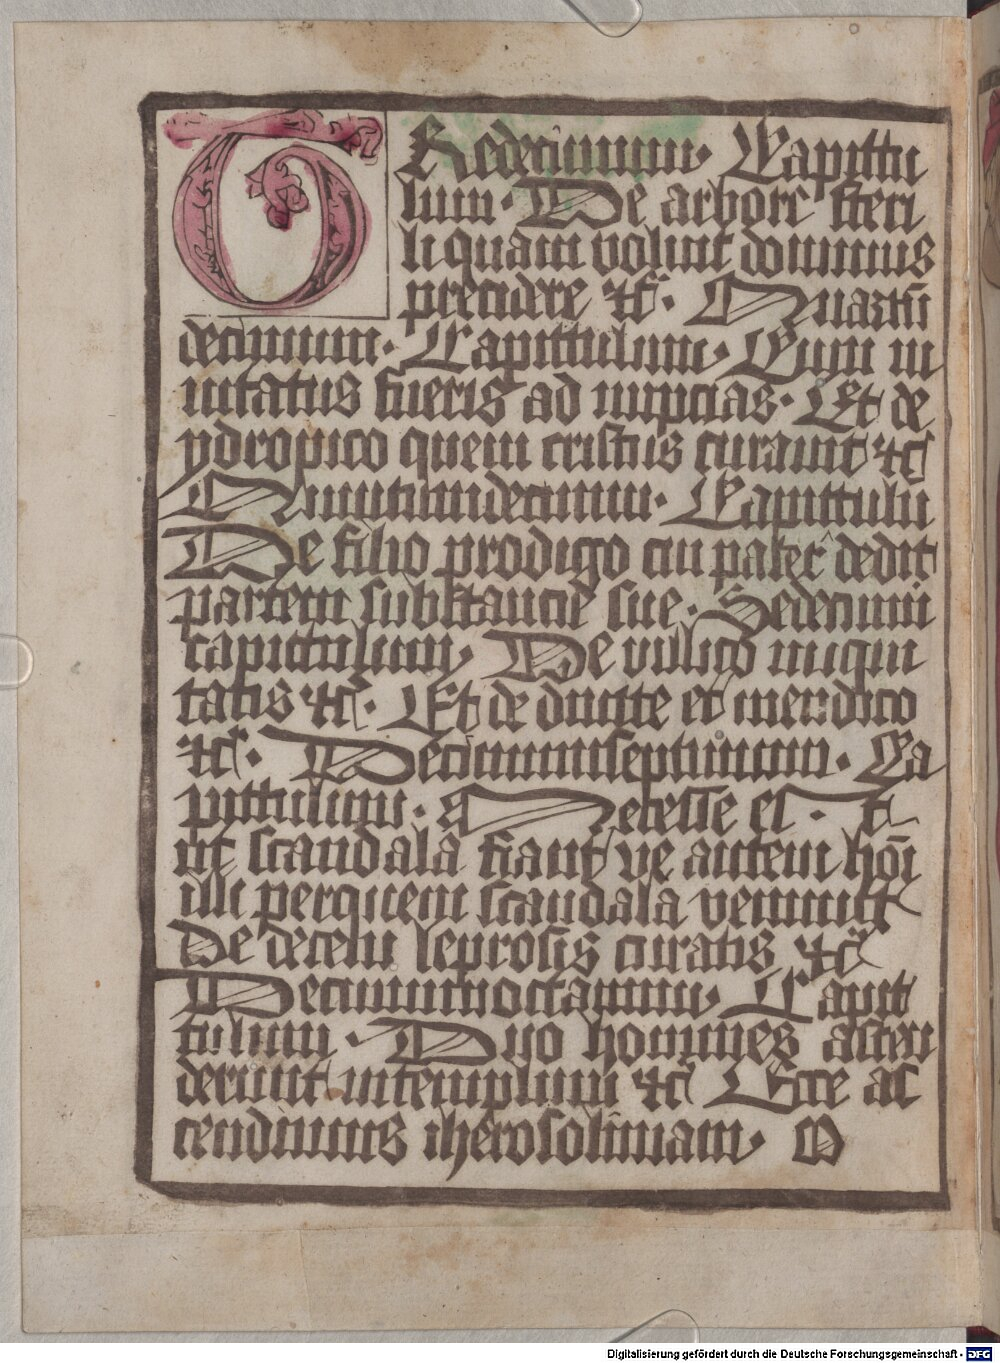 TRedecimum· Capittu
lum· De arbore steri
li quam voluit dominus
precidere ⁊c̃· Quartũ
decimum· Capittulum· Cum in
uitatus fueris ad nupcias· Et de
ydropico quem cristus curauit ⁊c̃
Quintumdecimum· Capittulũ
De filio prodigo cui pater dedit
partem substancie sue· Sedecimũ
capittulum· De vilico iniqui
tatis ⁊c̃· Et de diuite et mendico
⁊c̃· Decimumseptimum· Ca
pittulum· Necesse est
vt scandala fiant ve autem hõi
illi per quem scandala veniunt
De decem leprosis curatis ⁊c̃
Decimumoctauum· Capit
tulum· Duo homines ascen
derunt in templum ⁊c̃ Ecce as
cendimus iherosolimam·
Digitalisierung gefördert durch die Deutsche Forschungsgemeinschaft - DFG